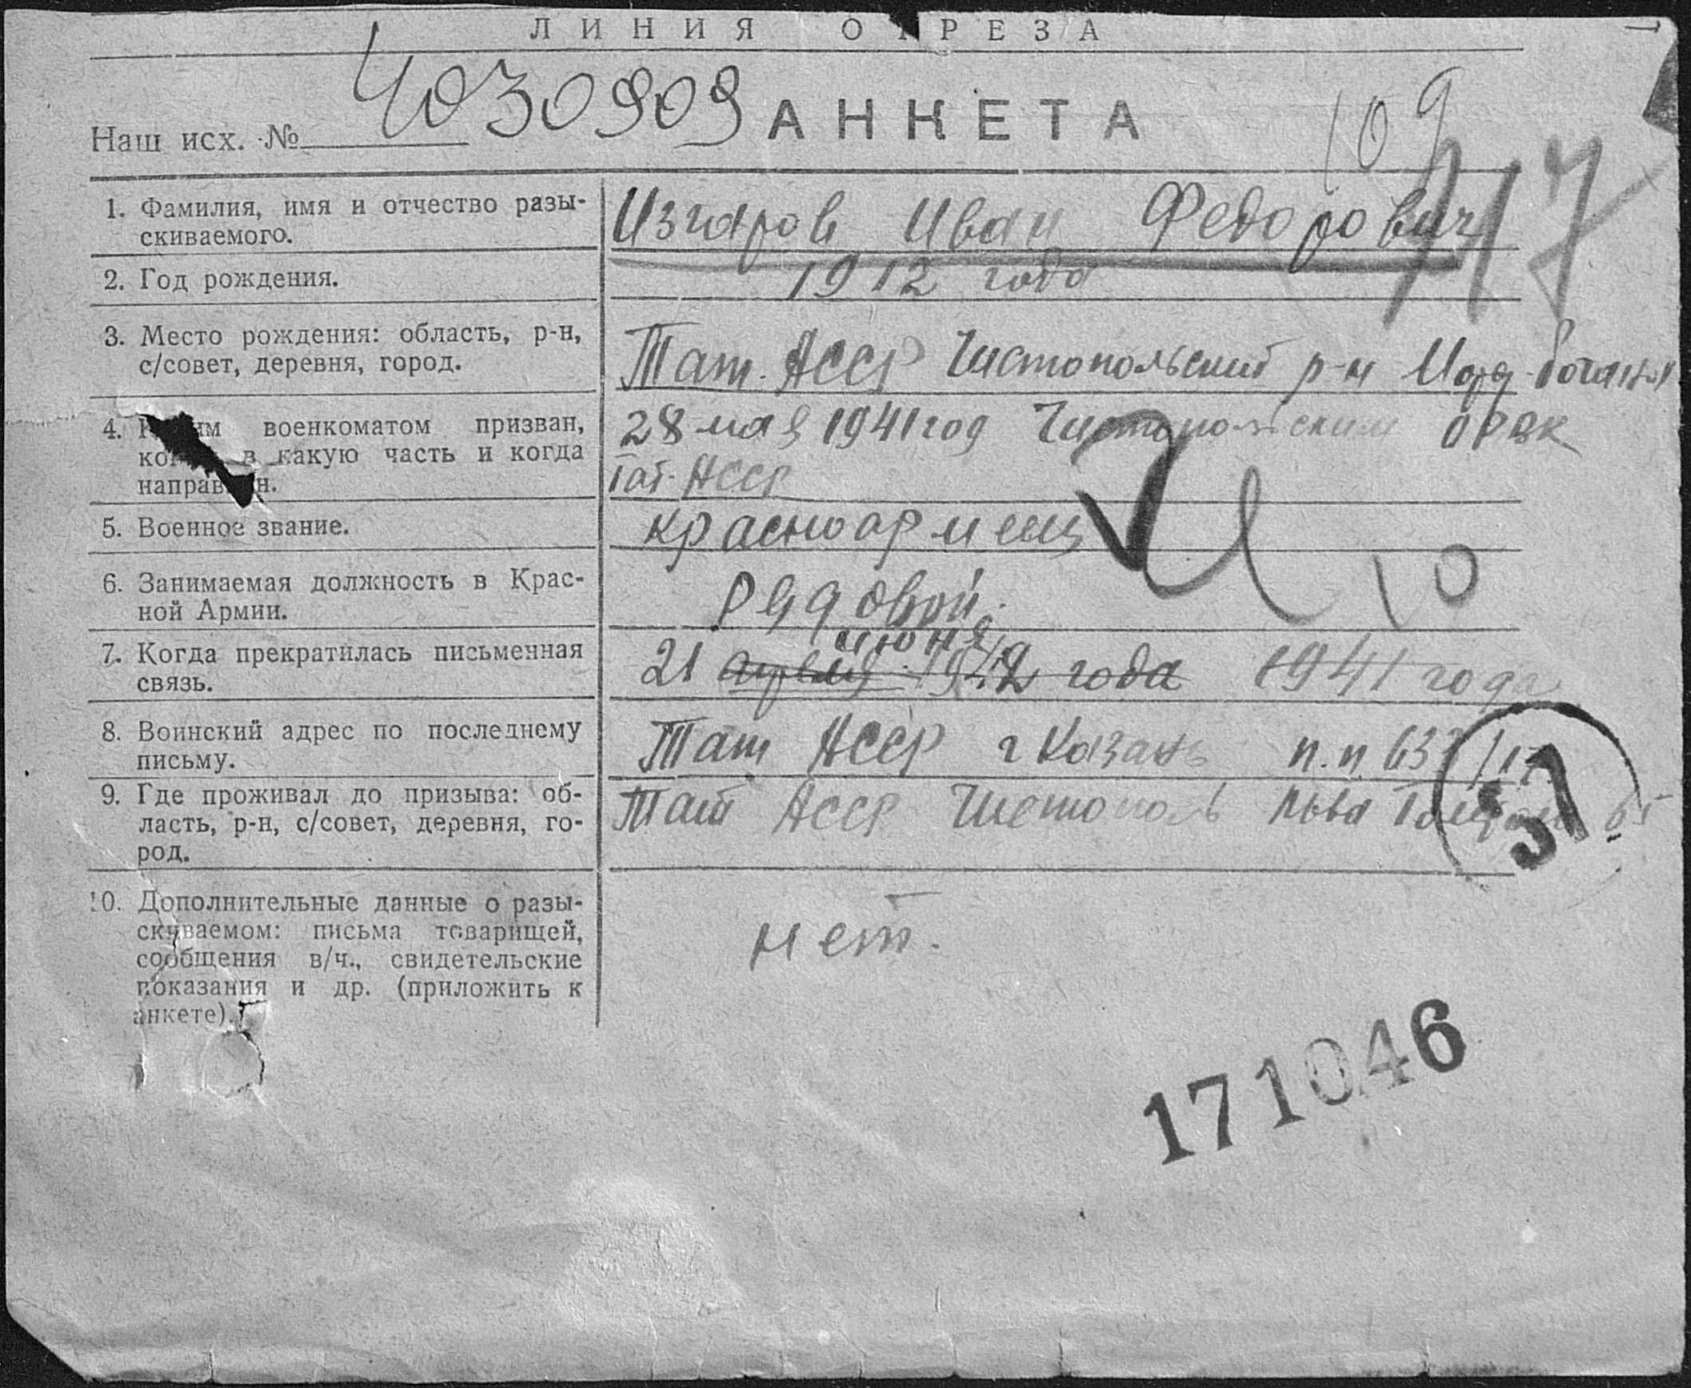 ЛИНИЯ ОТРЕЗА
Наш исх. № 4030909 АНКЕТА
109
1. Фамилия, имя и отчество разы-
скиваемого.
Изгаров Иван Федорович
2. Год рождения.
1912 года
3. Место рождения: область, р-н,
с/совет, деревня, город.
Тат. АССР Чистопольский р-н
4. военкоматом призван,
в какую часть и когда
28 мая 1941 год Чистопольским ОРВК
Тат. АССР
5. Военное звание.
красноармеец
6. Занимаемая должность в Крас-
ной Армии.
Рядовой.
7. Когда прекратилась письменная
связь.
июня
21 апреля 1942 года 1941 года
8. Воинский адрес по последнему
письму.
Тат АССР г Казань п.п
9. Где проживал до призыва: об-
ласть, р-н, с/совет, деревня, го-
род.
Тат АССР Чистополь Льва
37
10. Дополнительные данные о разы-
скиваемом: письма товарищей,
сообщения в/ч., свидетельские
показания и др. (приложить к
анкете).
нет.
171046